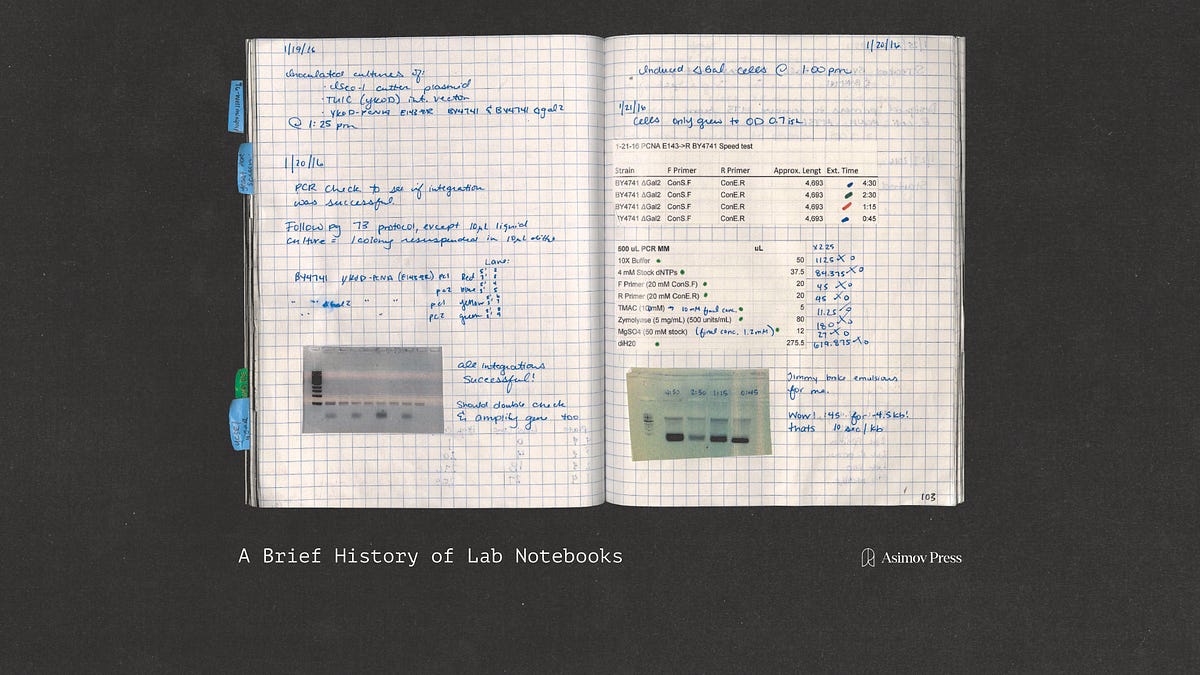 1/19/16
Inoculated cultures of:
· Isce-1 cutter plasmid
· TUIC (YKOD) int. vector
· YKOD-PCNA E143R BY4741 & BY4741 Δgal2
@ 1:25 pm
1/20/16
PCR check to see if integration
was successful.
Following T3 protocol, except 10µL liquid
culture = 1 colony resuspended in 10µL
BY4741 YKOD-PCNA (E143R) pc1 Red
Lane:
pc2
" " gal2 " " pc1 yellow
" " pc2 green
all integrations
Successful!
Should double check
& amplify gene too
1/20/16
Induced ΔGal cells @ 1:00 pm
1/21/16
Cells only grew to OD 0.7
1-21-16 PCNA E143->R BY4741 Speed test
Strain F Primer R Primer Approx. Lengt Ext. Time
BY4741 ΔGal2 ConS.F ConE.R 4,693 4:30
BY4741 ΔGal2 ConS.F ConE.R 4,693 2:30
BY4741 ΔGal2 ConS.F ConE.R 4,693 1:15
BY4741 ΔGal2 ConS.F ConE.R 4,693 0:45
500 uL PCR MM uL x2.25
10X Buffer 50 112.5
4 mM Stock dNTPs 37.5 84.375
F Primer (20 mM ConS.F) 20 45
R Primer (20 mM ConE.R) 20 45
TMAC (100mM) → 10 mM final conc. 5 11.25
Zymolyase (5 mg/mL) (500 units/mL) 80 180
MgSO4 (50 mM stock) (final conc. 1.2mM) 12 27
diH20 275.5 619.875
4:30 2:30 1:15 0:45
Jimmy broke emulsions
for me.
Wow! :45 for ~4.5kb!
thats 10 sec/kb
103
A Brief History of Lab Notebooks
Asimov Press